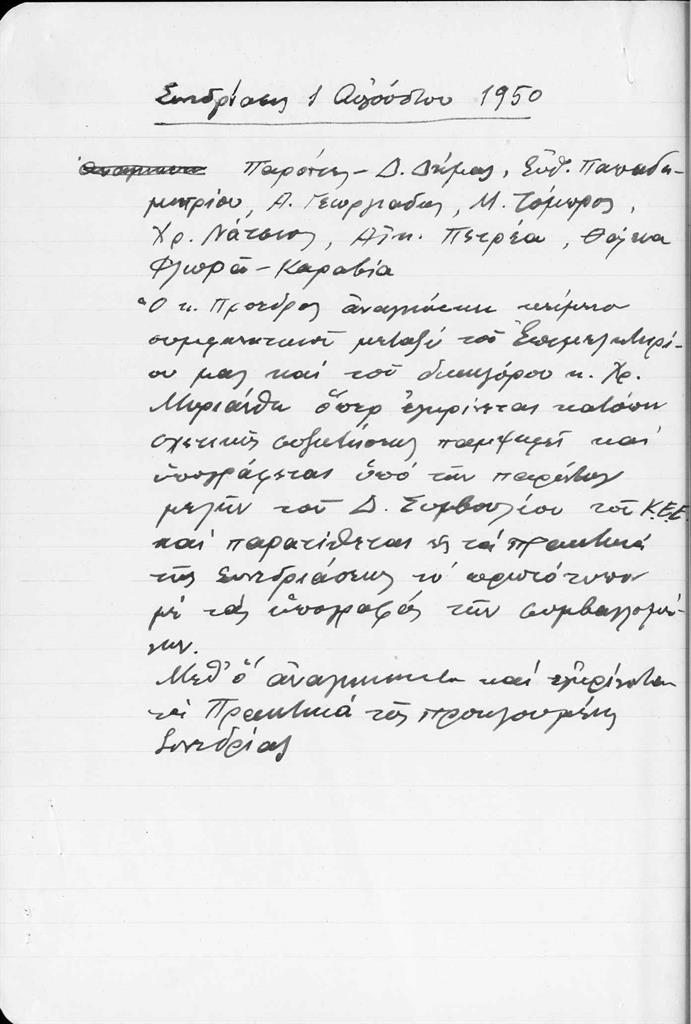 Συνεδρίασις 1 Αὐγούστου 1950
Παρόντες – Δ. Δήμας, Εὐθ. Παπαδη-
μητρίου, Α. Γεωργιάδης, Μ. Τόμπρος,
Χρ. Νάτσιος, Αἰκ. Πετρέα, Θάλεια
Φλωρᾶ – Καραβία
Ὁ κ. Πρόεδρος ἀναγινώσκει κείμενο
συμφωνητικοῦ μεταξύ τοῦ Ἐπιμελητηρί-
ου μας καί τοῦ δικηγόρου κ. Χρ.
Μυριάνθη ὅπερ ἐγκρίνεται κατόπιν
σχετικῆς συζητήσεως παμψηφεί καί
ὑπογράφεται ὑπό τῶν παρόντων
μελῶν τοῦ Δ. Συμβουλίου τοῦ Κ.Ε.Ε.
καί παρατίθεται εἰς τά πρακτικά
τῆς Συνεδριάσεως τό πρωτότυπον
μέ τάς ὑπογραφάς τῶν συμβαλλομέ-
νων.
Μεθ' ὅ ἀναγινώσκονται καί ἐγκρίνονται
τά Πρακτικά τῆς προηγουμένης
Συνεδρίας